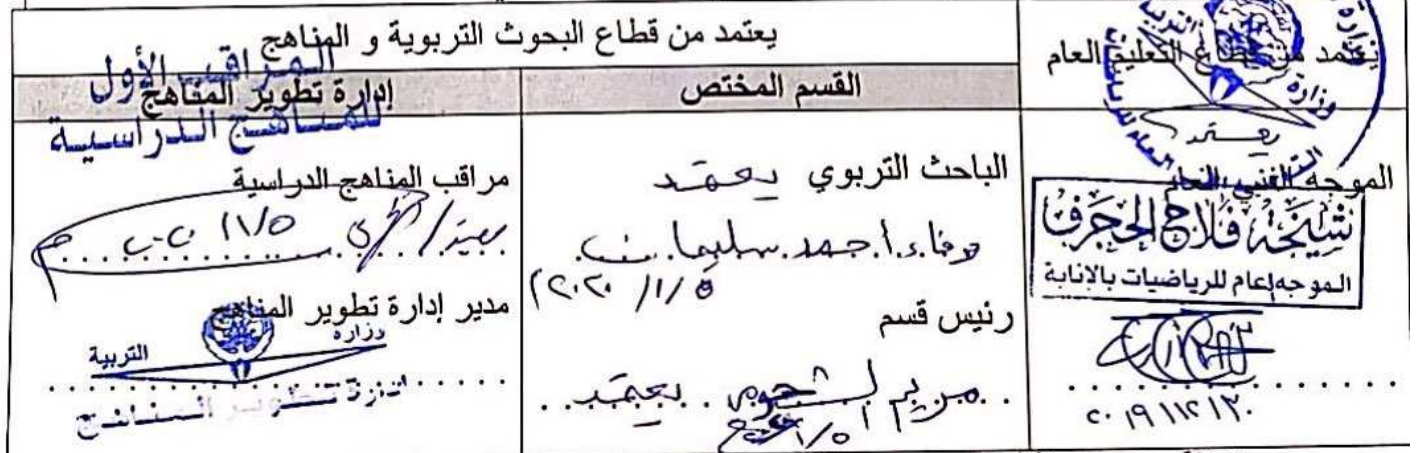 يعتمد من قطاع التعليم العام
يعتمد من قطاع البحوث التربوية و المناهج
القسم المختص
إدارة تطوير المناهج
المراقب الأول
للمناهج الدراسية
يعتمد
الموجه الفني العام
شيخة فلاح الحجرف
الموجه العام للرياضيات بالإنابة
٢٠١٩/١٢/٣٠
الباحث التربوي يعتمد
وفاء أحمد سليمان
٢٠٢٠/١/٥
رئيس قسم
مريم يعتمد
١/٥
مراقب المناهج الدراسية
١/٥
مدير إدارة تطوير المناهج
وزارة
التربية
إدارة تطوير المناهج